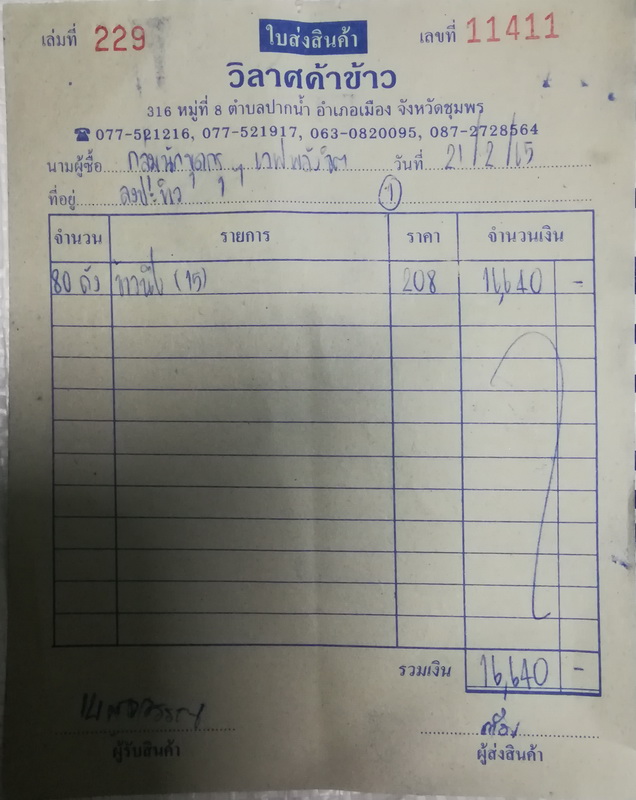 เล่มที่ 229 ใบส่งสินค้า เลขที่ 11411
วิลาศค้าข้าว
316 หมู่ที่ 8 ตำบลปากน้ำ อำเภอเมือง จังหวัดชุมพร
☎ 077-521216, 077-521917, 063-0820095, 087-2728564
นามผู้ซื้อ วันที่ 21/2/65
ที่อยู่ 1
จำนวน รายการ ราคา จำนวนเงิน
80 ถัง (15) 208 16,640 -
รวมเงิน 16,640 -
ผู้รับสินค้า ผู้ส่งสินค้า